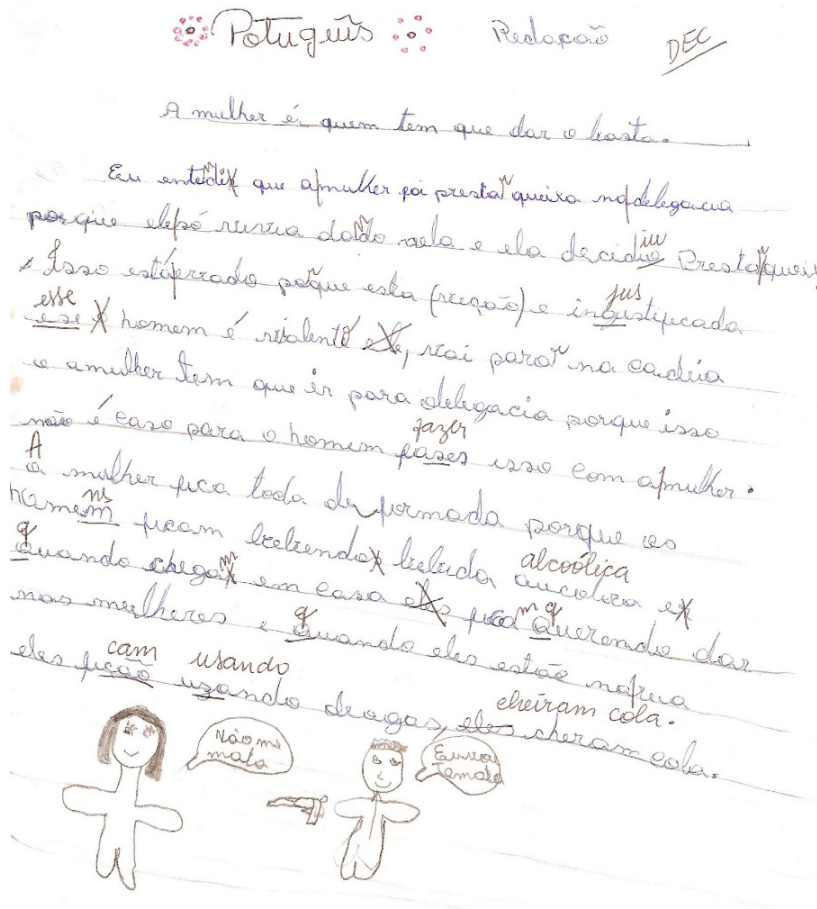 Potuguês Redação DEC
A mulher é quem tem que dar o basta.
Eu entedir que a mulher foi presta queixa na delegacia
porque ele só vivia dando nela e ela decidiu Presta queix
Isso está errado poque esta (reação) e ingustificada
jus
esse
ese homem é violento ele, vai para na cadeia
e a mulher tem que ir para delegacia porque isso
não é caso para o homem fases isso com a mulher.
fazer
A
a mulher fica toda deformada porque os
ns
Homem ficam bebendo bebida aucolica e
alcoólica
q
Quando chega em casa eles fica Querendo dar
m q
nas mulheres e Quando eles estão na rua
q
eles ficão uzando drogas, eles cheram cola.
cam usando cheiram cola.
Não mi mata
Eu vou te mata